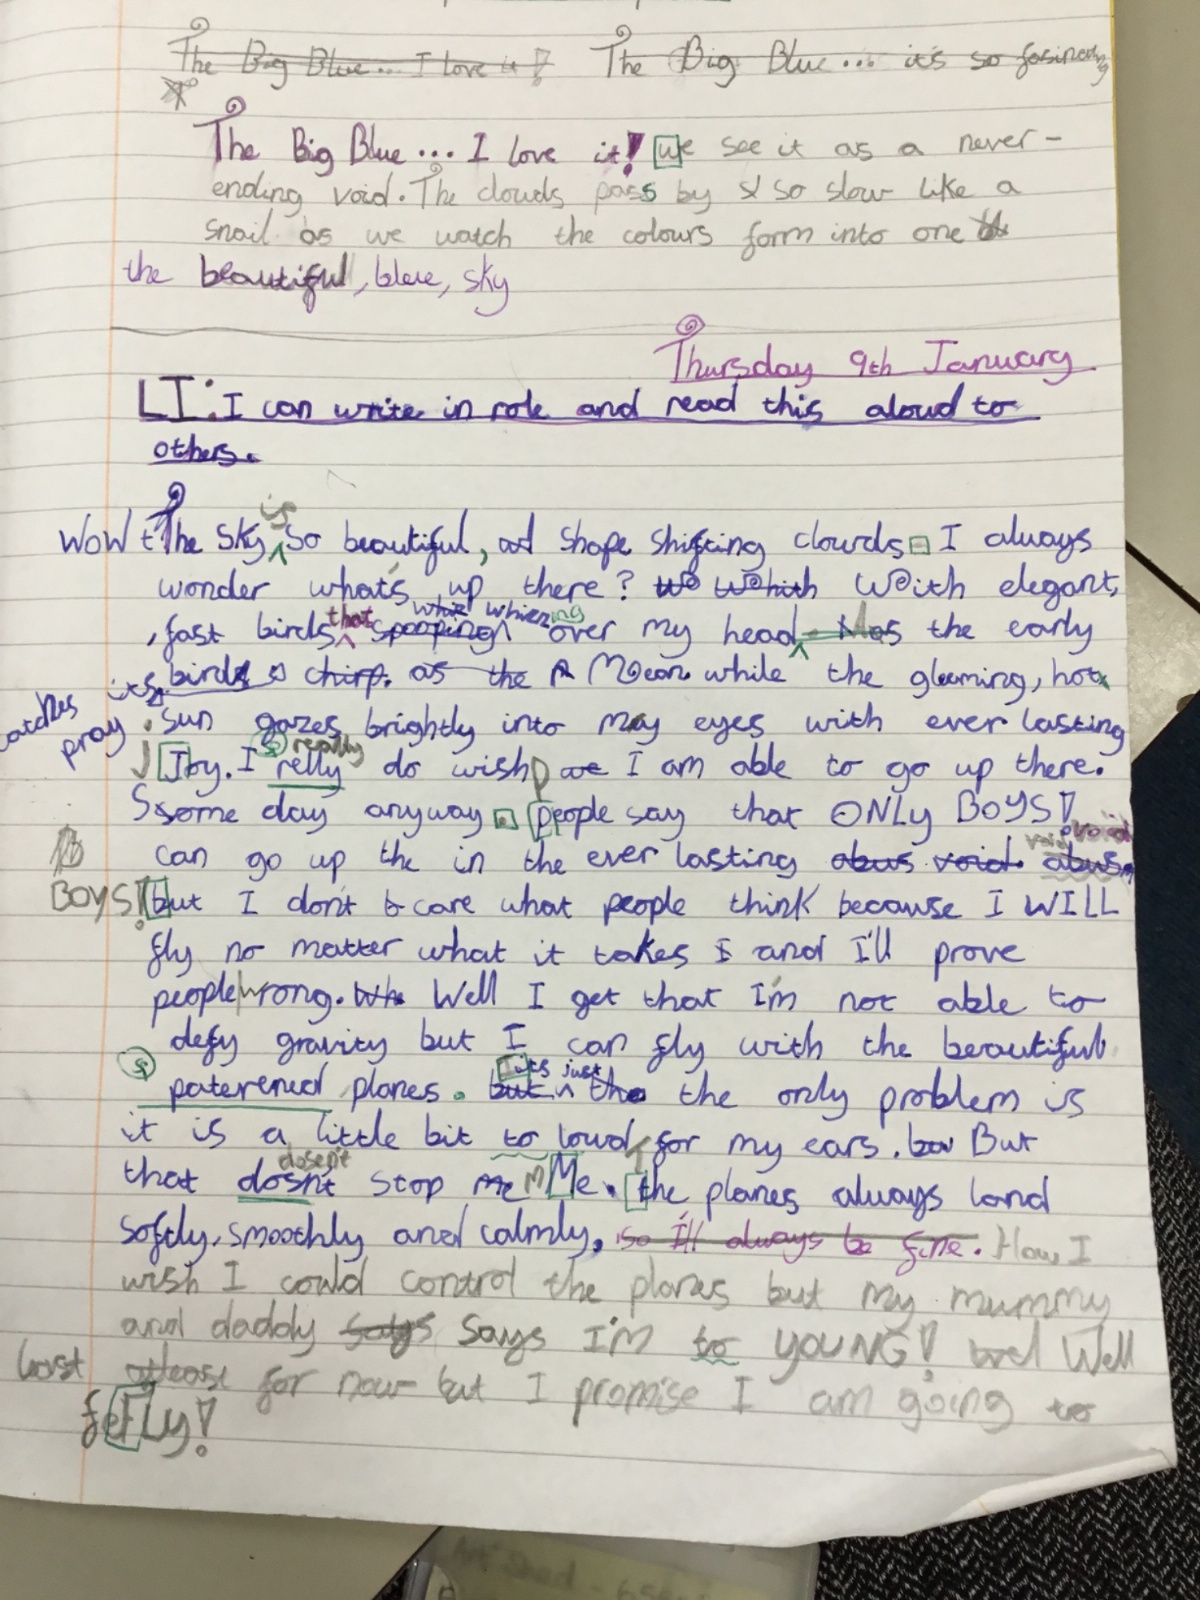 The Big Blue... I love it! The Big Blue... it's so fasinating
The Big Blue... I love it! we see it as a never-
ending void. The clouds pass by so slow like a
snail as we watch the colours form into one
the beautiful, blue, sky
Thursday 9th January
LI: I can write in role and read this aloud to
others.
WOW the sky is so beautiful, and shape shifting clouds. I always
wonder what's up there? With elegant,
, fast birds that whizzing over my head as the early
bird catches its pray. Mean while the gleaming, hot
sun gazes brightly into may eyes with ever lasting
Joy. I really do wish I am able to go up there.
Some day anyway. people say that ONLY BOYS!
can go up the in the ever lasting void.
BOYS! but I don't care what people think because I WILL
fly no matter what it takes and I'll prove
people wrong. Well I get that I'm not able to
defy gravity but I can fly with the beautiful
paterened planes. its just the only problem is
it is a little bit to loud for my ears. But
that dosen't stop Me. the planes always land
softly, smoothly and calmly. so I'll always be fine. How I
wish I could control the planes but my mummy
and daddy says Says I'M to YOUNG! Well
for now but I promise I am going to
FLy!